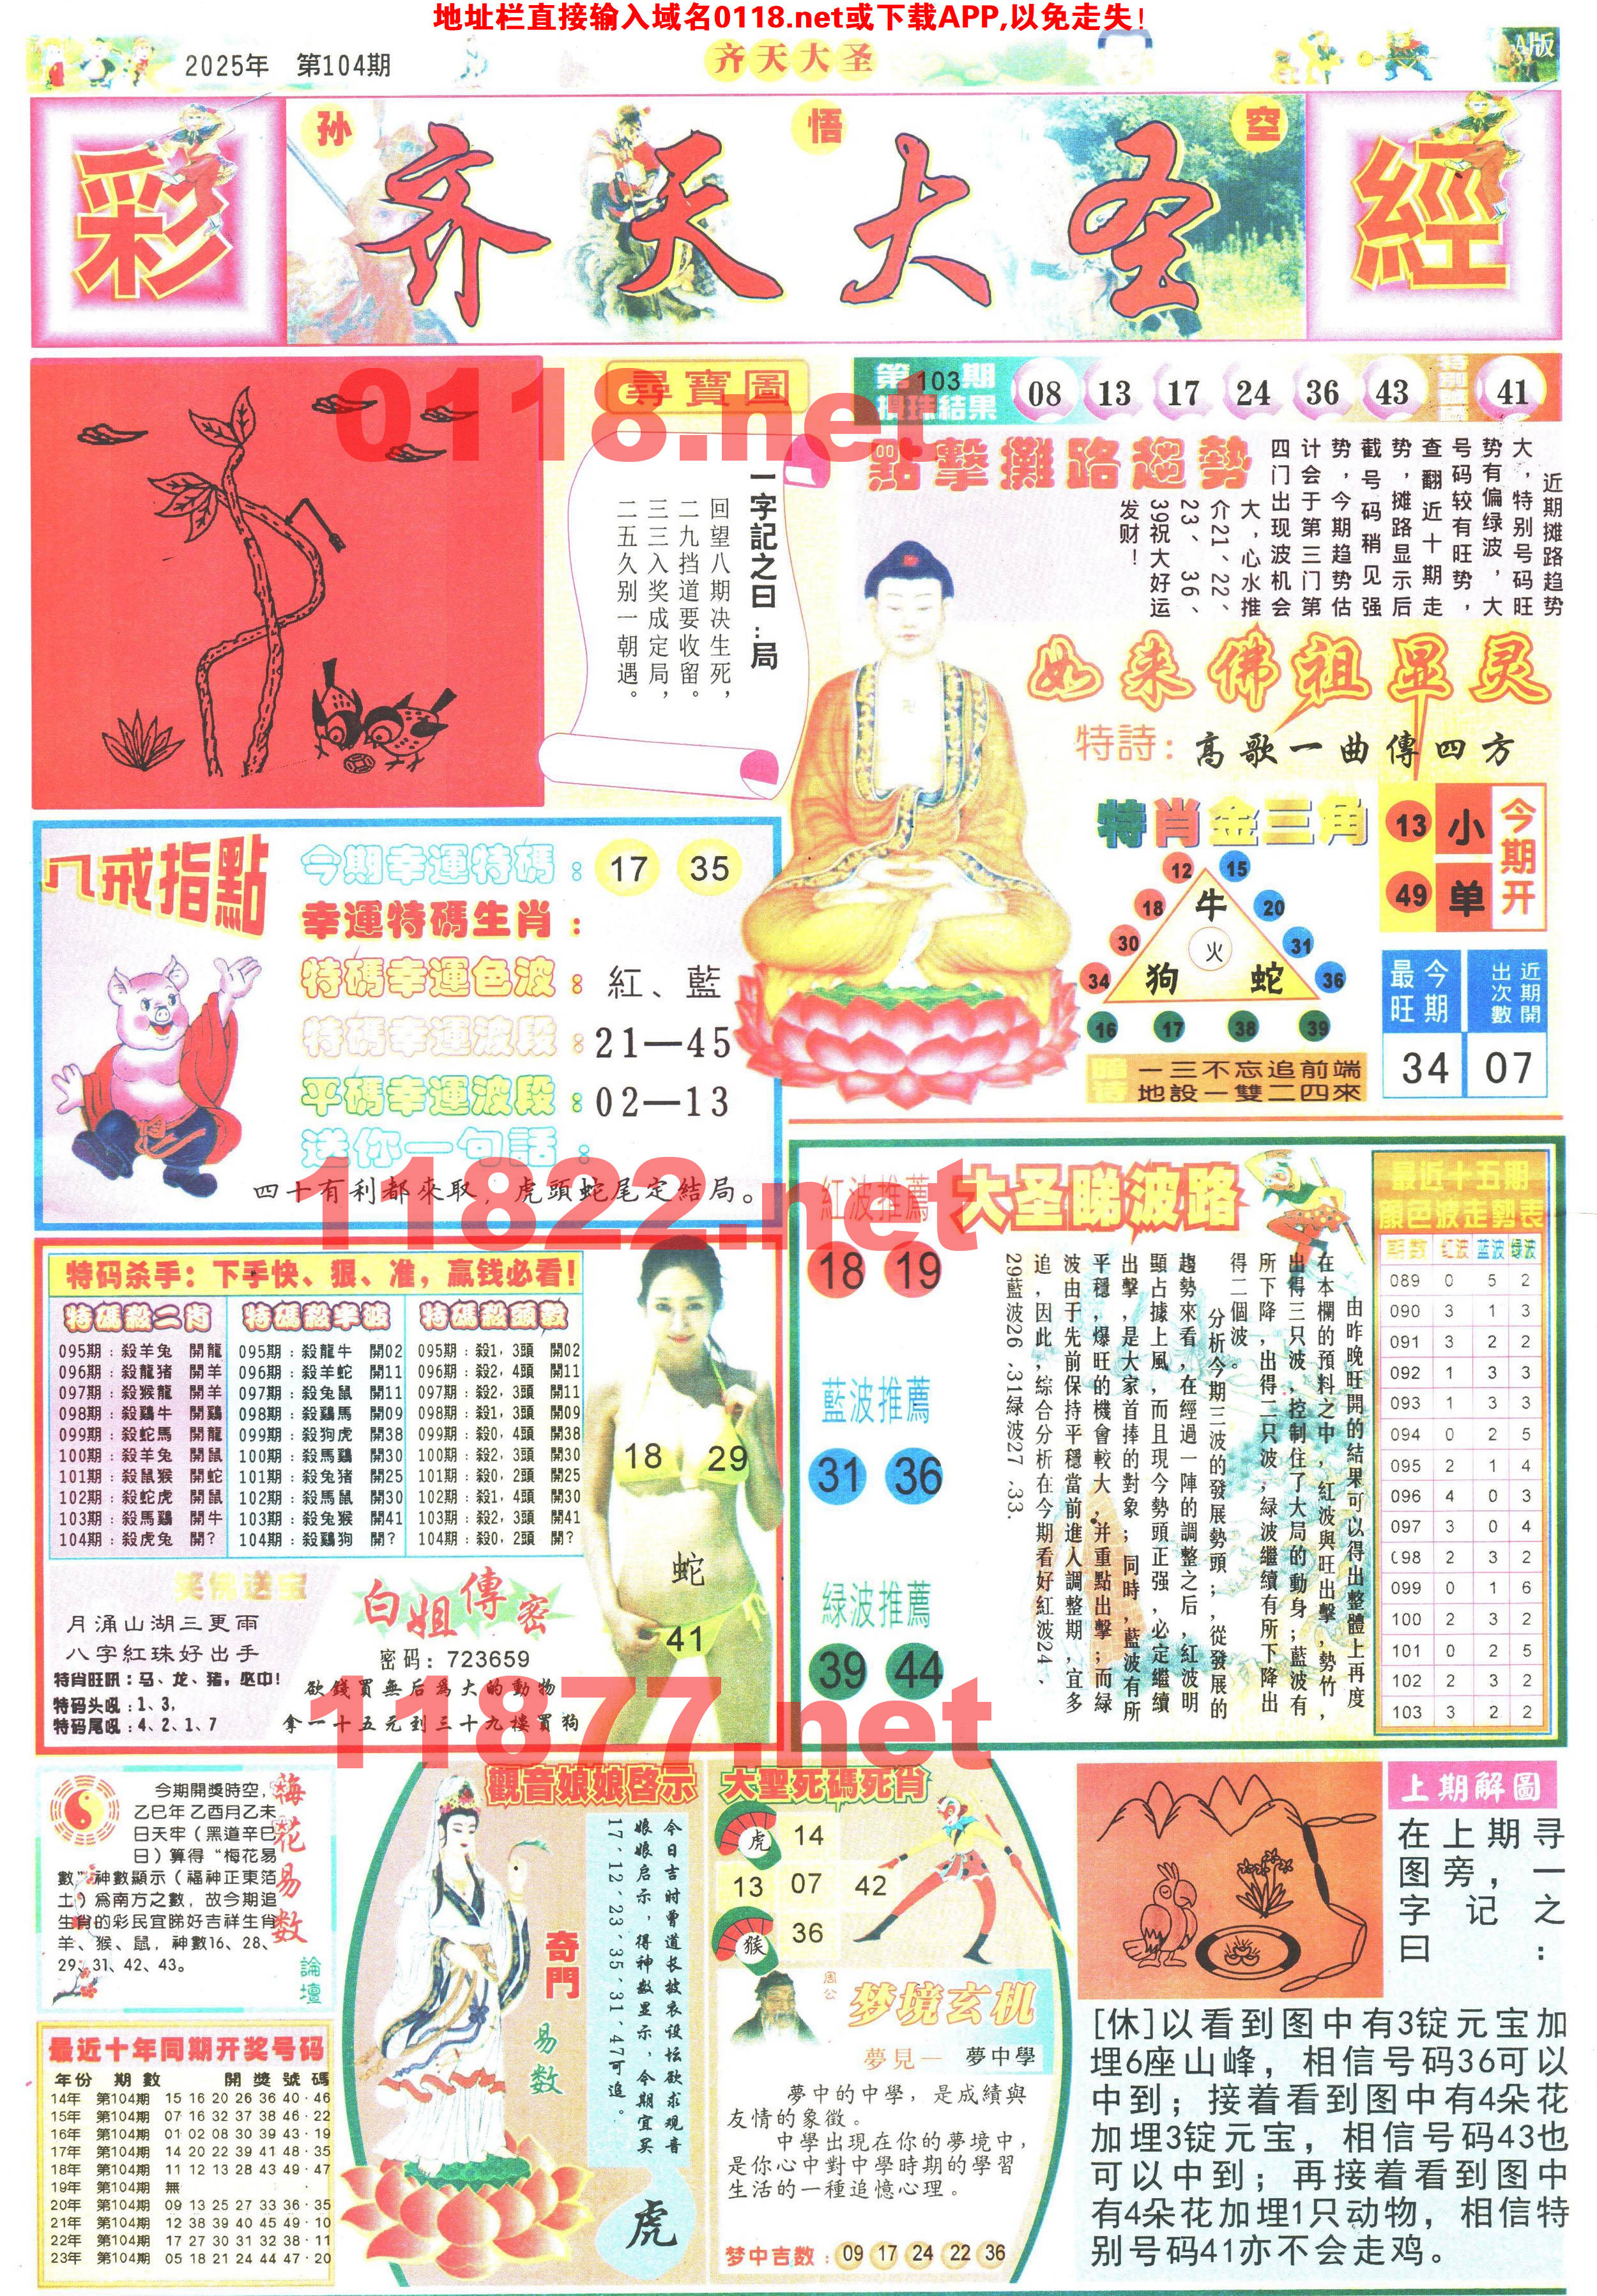 地址栏直接输入域名0118.net或下载APP,以免走失!
2025年 第104期
齐天大圣
A版
彩
孙 悟 空
齐天大圣
經
尋寶圖
一字記之曰:局
回望八期决生死，
二九挡道要收留。
三三入奖成定局，
二五久别一朝遇。
第103期
攪珠結果
08 13 17 24 36 43
特別號碼
41
點擊攤路趨勢
近期摊路趋势
大，特别号码旺
势有偏绿波，大
号码较有旺势，
查翻近十期走
势，摊路显示后
截号码稍见强
势，今期趋势估
计会于第三门第
四门出现波机会
大，心水推
介21、22、
23、36、
39祝大好运
发财！
如来佛祖显灵
特詩：高歌一曲傳四方
特肖金三角
12 15
18 牛 20
30 火 31
34 狗 蛇 36
16 17 38 39
一三不忘追前端
地設一雙二四來
13 小
49 单
今期开
今期最旺
近期開出次數
34 07
八戒指點
今期幸運特碼：17 35
幸運特碼生肖：
特碼幸運色波：紅、藍
特碼幸運波段：21—45
平碼幸運波段：02—13
送你一句話：
四十有利都來取，虎頭蛇尾定結局。
0118.net
11822.net
11877.net
特码杀手：下手快、狠、准，赢钱必看！
特碼殺二肖 特碼殺半波 特碼殺頭數
095期：殺羊兔 開龍 095期：殺龍牛 開02 095期：殺1，3頭 開02
096期：殺龍猪 開羊 096期：殺羊蛇 開11 096期：殺2，4頭 開11
097期：殺猴龍 開羊 097期：殺兔鼠 開11 097期：殺2，3頭 開11
098期：殺鷄牛 開鷄 098期：殺鷄馬 開09 098期：殺1，3頭 開09
099期：殺蛇馬 開龍 099期：殺狗虎 開38 099期：殺0，4頭 開38
100期：殺羊兔 開鼠 100期：殺馬鷄 開30 100期：殺2，3頭 開30
101期：殺鼠猴 開蛇 101期：殺兔猪 開25 101期：殺0，2頭 開25
102期：殺蛇虎 開鼠 102期：殺馬鼠 開30 102期：殺1，4頭 開30
103期：殺馬鷄 開牛 103期：殺兔猴 開41 103期：殺2，3頭 開41
104期：殺虎兔 開？ 104期：殺鷄狗 開？ 104期：殺0，2頭 開？
18 29
蛇
41
笑佛送宝
月涌山湖三更雨
八字紅珠好出手
特肖旺吼：马、龙、猪，必中！
特码头吼：1、3，
特码尾吼：4、2、1、7
白姐傳密
密码：723659
欲錢買無后爲大的動物
拿一十五元到三十九樓買狗
紅波推薦
18 19
藍波推薦
31 36
緑波推薦
39 44
大圣睇波路
由昨晚旺開的結果可以得出整體上再度
在本欄的預料之中，紅波與旺出擊，勢竹，
出得三只波，控制住了大局的動身；藍波有
所下降，出得二只波，緑波繼續有所下降出
得二個波。
分析今期三波的發展勢頭；，從發展的
趨勢來看，在經過一陣的調整之后，紅波明
顯占據上風，而且現今勢頭正强，必定繼續
出擊，是大家首捧的對象；同時，藍波有所
平穩，爆旺的機會較大，并重點出擊；而緑
波由于先前保持平穩當前進入調整期，宜多
追，因此，綜合分析在今期看好紅波24、
29藍波26、31绿波27、33.
最近十五期
顔色波走勢表
期數 红波 蓝波 绿波
089 0 5 2
090 3 1 3
091 3 2 2
092 1 3 3
093 1 3 3
094 0 2 5
095 2 1 4
096 4 0 3
097 3 0 4
098 2 3 2
099 0 1 6
100 2 3 2
101 0 2 5
102 2 3 2
103 3 2 2
梅花易数
論壇
今期開獎時空，
乙巳年 乙酉月乙未
日天牢（黑道辛巳
日）算得“梅花易
數”神數顯示（福神正東箔
土）爲南方之數，故今期追
生肖的彩民宜睇好吉祥生肖
羊、猴、鼠，神數16、28、
29、31、42、43。
最近十年同期开奖号码
年份 期數 開獎號碼
14年 第104期 15 16 20 26 36 40·46
15年 第104期 07 16 32 37 38 46·22
16年 第104期 01 02 08 30 39 43·19
17年 第104期 14 20 22 39 41 48·35
18年 第104期 11 12 13 28 43 49·47
19年 第104期 無
20年 第104期 09 13 25 27 33 36·35
21年 第104期 12 38 39 40 45 49·10
22年 第104期 17 27 30 31 32 38·11
23年 第104期 05 18 21 24 44 47·20
觀音娘娘啓示
今日吉时曾道长披衣设坛欲求观音
娘娘启示，得神数显示，今期宜买
17、12、23、35、31、47可追。
奇門
易数
虎
大聖死碼死肖
虎 14
13 07 42
猴 36
周公
梦境玄机
夢見一 夢中學
夢中的中學，是成績與
友情的象徵。
中學出現在你的夢境中，
是你心中對中學時期的學習
生活的一種追憶心理。
梦中吉数：09 17 24 22 36
上期解圖
在上期寻
图旁，一
字记之
曰：
[休]以看到图中有3锭元宝加
埋6座山峰，相信号码36可以
中到；接着看到图中有4朵花
加埋3锭元宝，相信号码43也
可以中到；再接着看到图中
有4朵花加埋1只动物，相信特
别号码41亦不会走鸡。